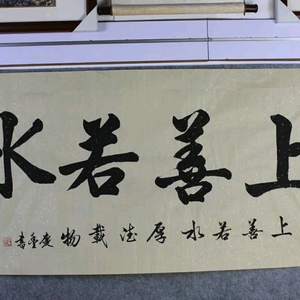 上善若水
上善若水厚德載物